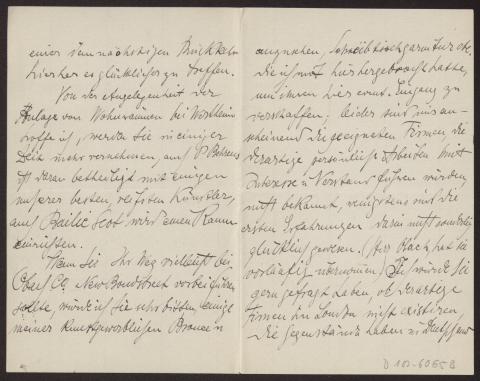 einer demnächstigen Rückkehr
hierher es glücklicher zu treffen.
Von der Angelegenheit der
Anlage von Wohnräumen bei Wertheim
hoffe ich, werden Sie in einiger
Zeit mehr vernehmen, auch P Behrens
ist daran betheiligt mit einigen
unserer besten, reifsten Künstler,
auch Bailie Scot wird einen Raum
einrichten.
Wenn Sie Ihr Weg vielleicht bei
Obach Co. New Bondstreet vorbeiführen
sollte, würde ich Sie sehr bitten, einige
meiner kunstgewerblichen Bronzen
anzusehen, Schreibtischgarnitur etc.
die ich mit hierhergebracht hatte,
um ihnen hier event. Eingang zu
verschaffen; leider sind mir an-
scheinend die geeigneten Firmen, die
derartige persönliche Arbeiten mit
Interesse u Verstand führen würden
nicht bekannt, wenigstens sind die
ersten Erfahrungen darin nicht sonderlich
glücklich gewesen. (Herr Obach hat sie
vorläufig übernommen) Ich würde Sie
gern gefragt haben, ob derartige
Firmen in London nicht existiren,
die Gegenstände haben in Deutschland
D 183-6065 B